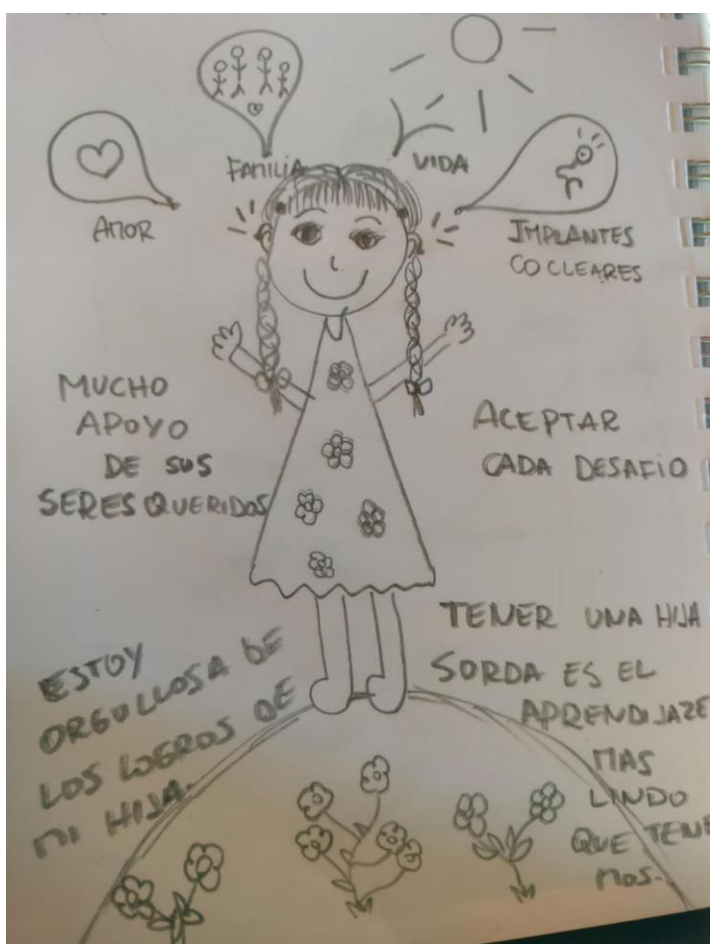 FAMILIA
VIDA
AMOR
IMPLANTES
COCLEARES
MUCHO
APOYO
DE SUS
SERES QUERIDOS
ACEPTAR
CADA DESAFIO
ESTOY
ORGULLOSA DE
LOS LOGROS DE
MI HIJA.
TENER UNA HIJA
SORDA ES EL
APRENDIJAZE
MAS
LINDO
QUE TENE
MOS.